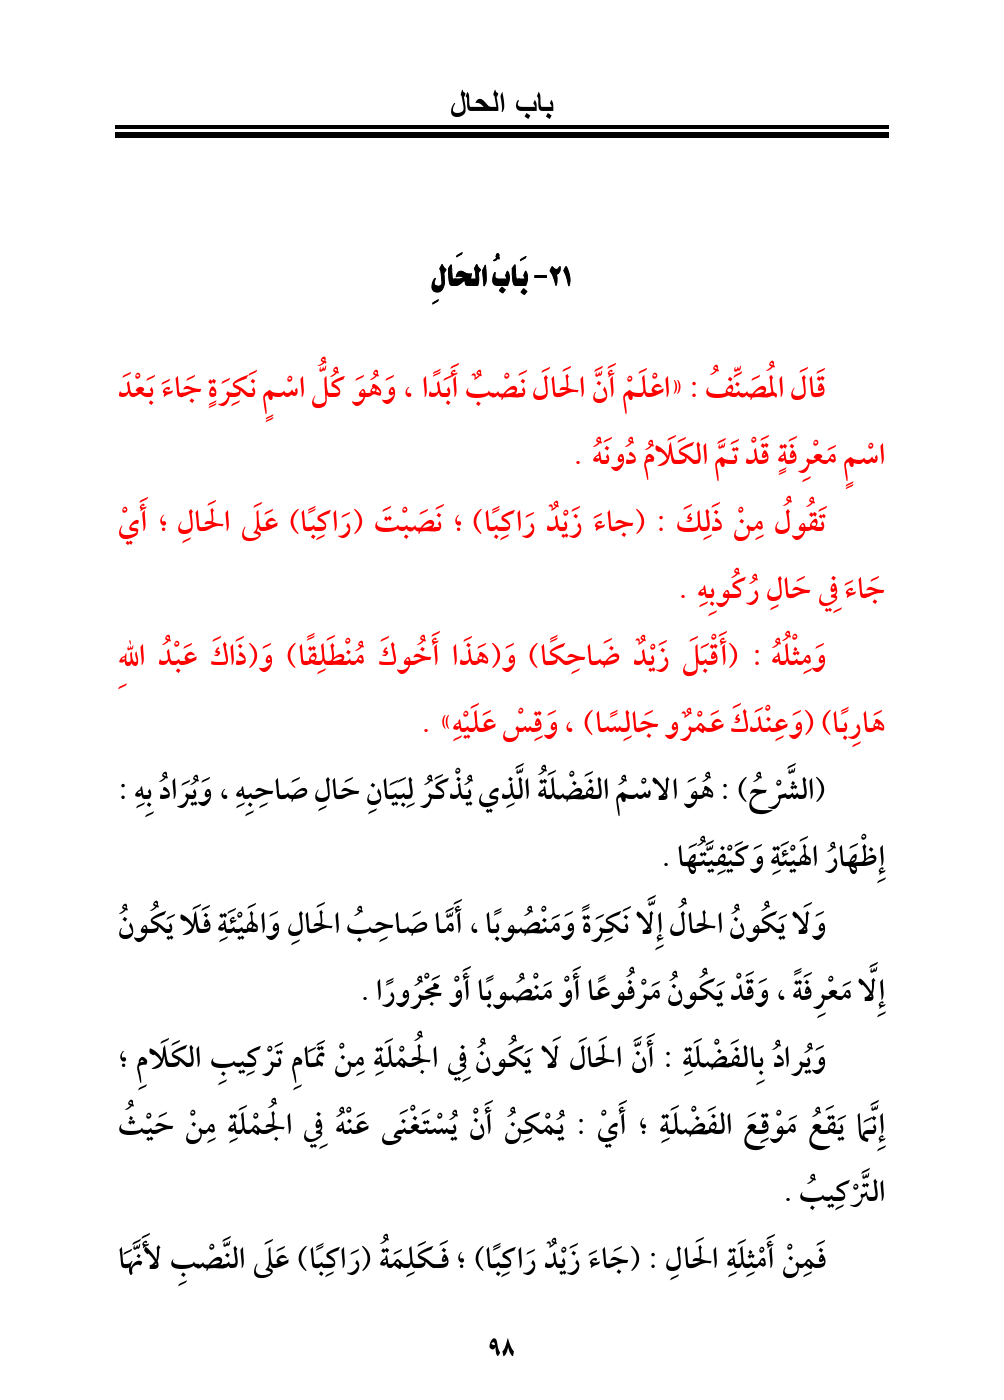 باب الحال
٢١- بَابُ الحَالِ
قَالَ المُصَنِّفُ : «اعْلَمْ أَنَّ الحَالَ نَصْبٌ أَبَدًا ، وَهُوَ كُلُّ اسْمٍ نَكِرَةٍ جَاءَ بَعْدَ
اسْمٍ مَعْرِفَةٍ قَدْ تَمَّ الكَلَامُ دُونَهُ .
تَقُولُ مِنْ ذَلِكَ : (جاءَ زَيْدٌ رَاكِبًا) ؛ نَصَبْتَ (رَاكِبًا) عَلَى الحَالِ ؛ أَيْ
جَاءَ فِي حَالِ رُكُوبِهِ .
وَمِثْلُهُ : (أَقْبَلَ زَيْدٌ ضَاحِكًا) وَ(هَذَا أَخُوكَ مُنْطَلِقًا) وَ(ذَاكَ عَبْدُ اللهِ
هَارِبًا) (وَعِنْدَكَ عَمْرٌو جَالِسًا) ، وَقِسْ عَلَيْهِ» .
(الشَّرْحُ) : هُوَ الاسْمُ الفَضْلَةُ الَّذِي يُذْكَرُ لِبَيَانِ حَالِ صَاحِبِهِ ، وَيُرَادُ بِهِ :
إِظْهَارُ الهَيْئَةِ وَكَيْفِيَّتُهَا .
وَلَا يَكُونُ الحالُ إِلَّا نَكِرَةً وَمَنْصُوبًا ، أَمَّا صَاحِبُ الحَالِ وَالهَيْئَةِ فَلَا يَكُونُ
إِلَّا مَعْرِفَةً ، وَقَدْ يَكُونُ مَرْفُوعًا أَوْ مَنْصُوبًا أَوْ مَجْرُورًا .
وَيُرادُ بِالفَضْلَةِ : أَنَّ الحَالَ لَا يَكُونُ فِي الجُمْلَةِ مِنْ تَمَامِ تَرْكِيبِ الكَلَامِ ؛
إِنَّمَا يَقَعُ مَوْقِعَ الفَضْلَةِ ؛ أَيْ : يُمْكِنُ أَنْ يُسْتَغْنَى عَنْهُ فِي الجُمْلَةِ مِنْ حَيْثُ
التَّرْكِيبُ .
فَمِنْ أَمْثِلَةِ الحَالِ : (جَاءَ زَيْدٌ رَاكِبًا) ؛ فَكَلِمَةُ (رَاكِبًا) عَلَى النَّصْبِ لأَنَّهَا
٩٨